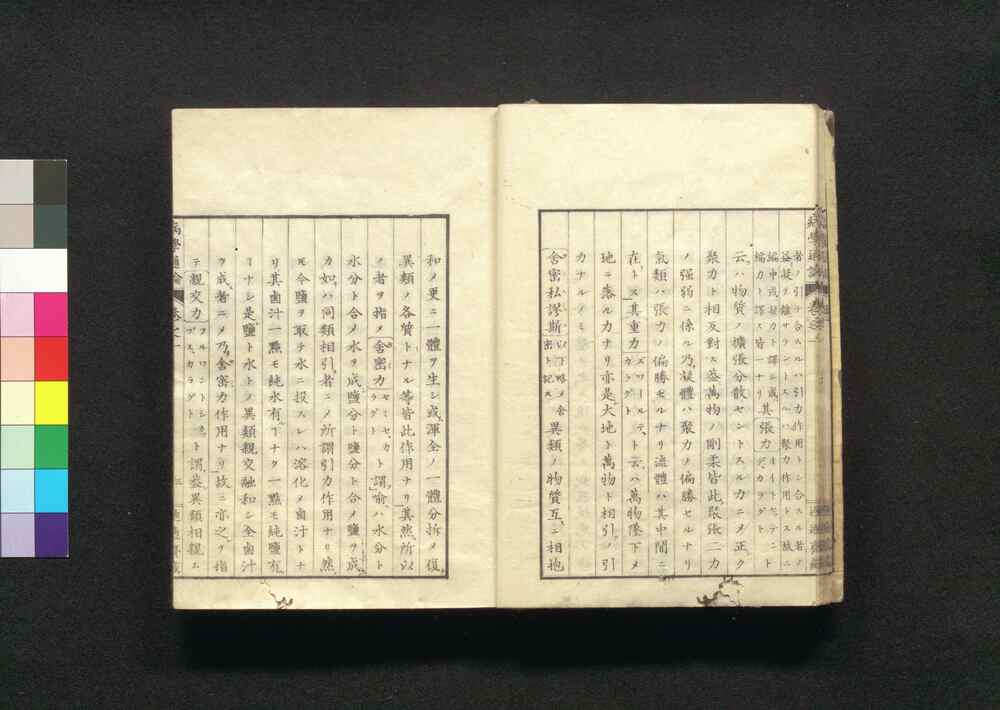 者ノ引テ合スルハ引力作用トシ合スル者ノ
益凝テ離サラントスルハ聚力作用トス故ニ
縮力ト譯ス皆一ナリ其張力
云ハ物質ノ擴張分散セントスルカニメ正ク
聚力ト相反對ス蓋萬物ノ剛柔皆此聚張二力
ノ强弱ニ係ル乃凝體ハ聚力ノ偏勝セルナリ
氣類ハ張力ノ偏勝セルナリ流體ハ其中間ニ
在トス其重力 ト云ハ萬物墜下メ
地ニ落ルカナリ亦是大地ト萬物ト相引ノ引
カナルノミ
舍密私謬斯以下略メ舍密ト記ス異類ノ物質互ニ相抱
和メ更ニ一體ヲ生シ或渾全ノ一體分拆メ復
異類ノ各質トナル等皆此作用ナリ其然所以
ノ者ヲ指メ舍密力 ト謂喻ハ水分ト
水分ト合メ水ヲ成鹽分ト鹽分ト合メ鹽ヲ成
カ如ハ同類相引者ニメ所謂引力作用ナリ然
モ今鹽ヲ取テ水ニ投スレハ溶化メ鹵汁トナ
リ其鹵汁一點モ純水有ナク一點モ純鹽有
ナシ是鹽ト水トノ異類親交融和シ全鹵汁
ヲ成者ニメ乃舍密力作用ナリ故ニ亦之ヲ指
テ親交力 ト謂蓋異類相親ム
病學通論 卷之一